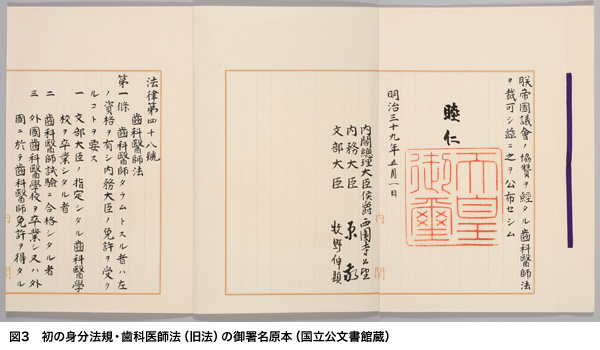 朕帝國議會ノ協賛ヲ經タル齒科醫師法
ヲ裁可シ玆ニ之ヲ公布セシム
睦仁
天皇御璽
明治三十九年五月一日
內閣總理大臣侯爵西園寺公望
內務大臣 原敬
文部大臣 牧野伸顯
法律第四十八號
齒科醫師法
第一條 齒科醫師タラムトスル者ハ左
ノ資格ヲ有シ內務大臣ノ免許ヲ受ク
ルコトヲ要ス
一 文部大臣ノ指定シタル齒科醫學
校ヲ卒業シタル者
二 齒科醫師試驗ニ合格シタル者
三 外國齒科醫學校ヲ卒業シ又ハ外
國ニ於テ齒科醫師免許ヲ得タル
図3 初の身分法規・歯科医師法（旧法）の御署名原本（国立公文書館蔵）